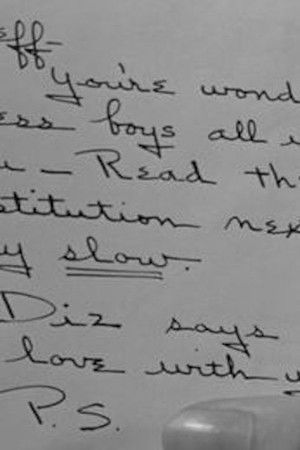 eff
You're wond
ess boys all
— Read th
stitution nex
y slow.
Diz says
love with y
P.S.